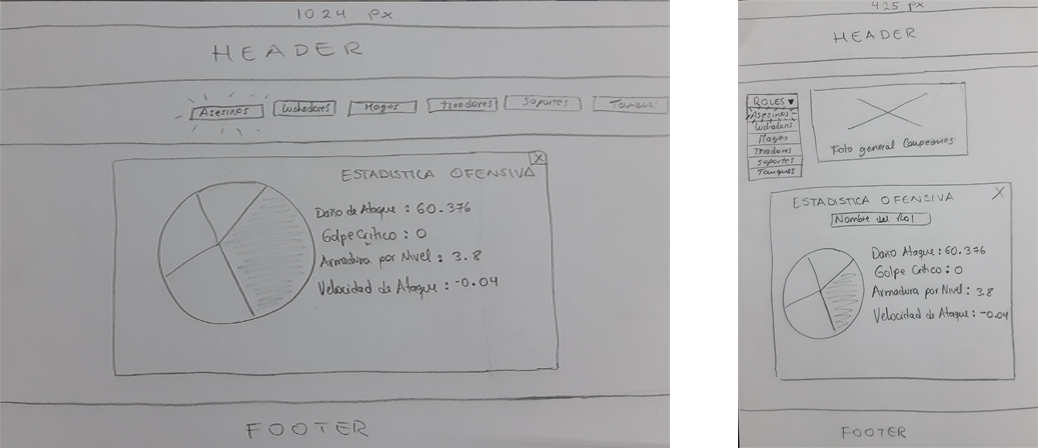 1024 px
HEADER
Asesinos Luchadores Magos tiradores Soportes Tanques
X
ESTADISTICA OFENSIVA
Daño de Ataque : 60.376
Golpe Critico : 0
Armadura por Nivel : 3.8
Velocidad de Ataque : -0.04
FOOTER
425 px
HEADER
ROLES ▼
Asesinos
Luchadores
Magos
Tiradores
Soportes
Tanques
Foto general Campeones
X
ESTADISTICA OFENSIVA
Nombre del Rol
Daño Ataque : 60.376
Golpe Critico : 0
Armadura por Nivel : 3.8
Velocidad de Ataque : -0.04
FOOTER